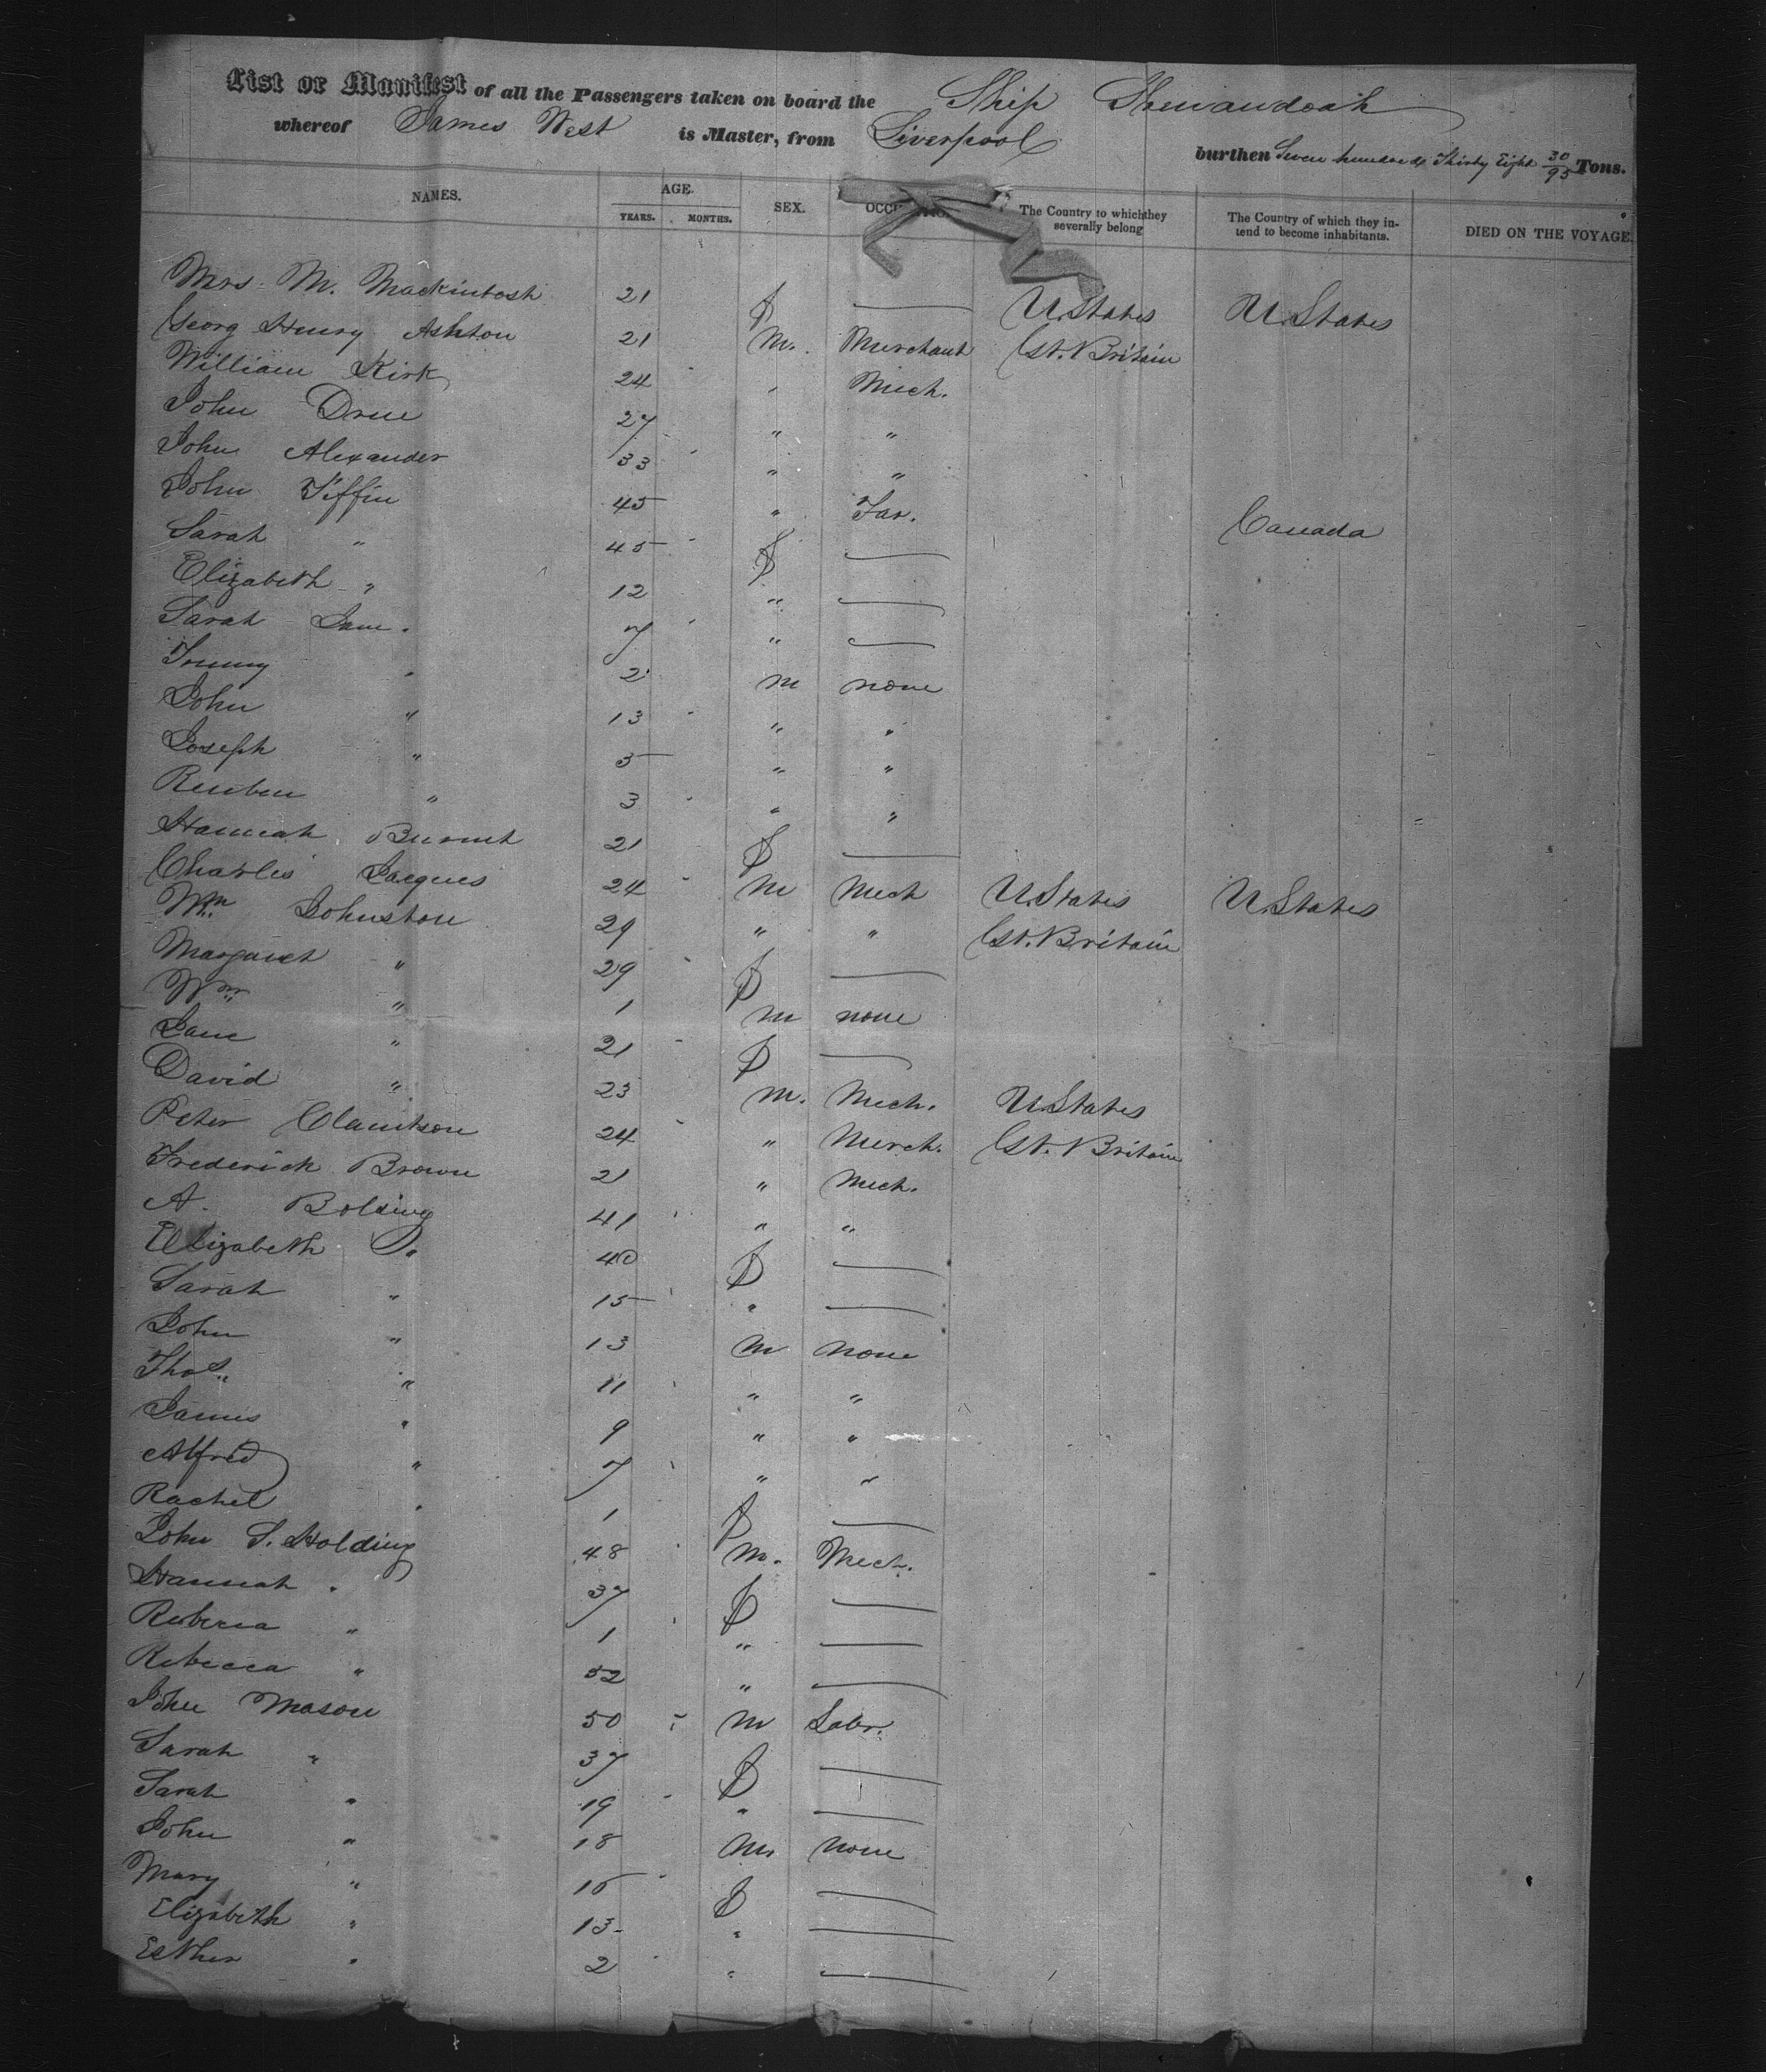 List or Manifest of all the Passengers taken on board the Ship Shenandoah
whereof James West is Master, from Liverpool burthen Seven hundred & Thirty Eight 30/95 Tons.
NAMES. AGE. YEARS. MONTHS. SEX. The Country to which they severally belong The Country of which they intend to become inhabitants. DIED ON THE VOYAGE.
Mrs. M. Mackintosh 21 f — U. States U. States
Georg Henry Ashton 21 M. Merchant Gt. Britain
William Kirk 24 " Mech.
John 27 " "
John Alexander 33 " "
John Tiffin 45 " Far. Canada
Sarah " 45 f —
Elizabeth " 12 " —
Sarah Jane " 7 " —
2 m none
John " 13 " "
Joseph " 5 " "
Reuben " 3 " "
Hannah 21 f —
Charles Jacques 24 m Mech U. States U. States
Wm Johnston 29 " " Gt. Britain
Margaret " 29 f —
Wm " 1 m none
Jane " 21 f —
David " 23 m. Mech. U. States
Peter 24 " Merch. Gt. Britain
Frederick Brown 21 " Mech.
A. 41 " "
Elizabeth " 40 f —
Sarah " 15 " —
John " 13 m none
Thos " 11 " "
James " 9 " "
Alfred " 7 " "
Rachel " 1 f —
John S. Holding 48 m. Mech.
Hannah " 37 f —
Rebecca " 1 " —
Rebecca " 52 " —
John Mason 50 m Labr.
Sarah " 37 f —
Sarah " 19 " —
John " 18 m none
Mary " 15 f —
Elizabeth " 13 " —
Esther " 2 " —